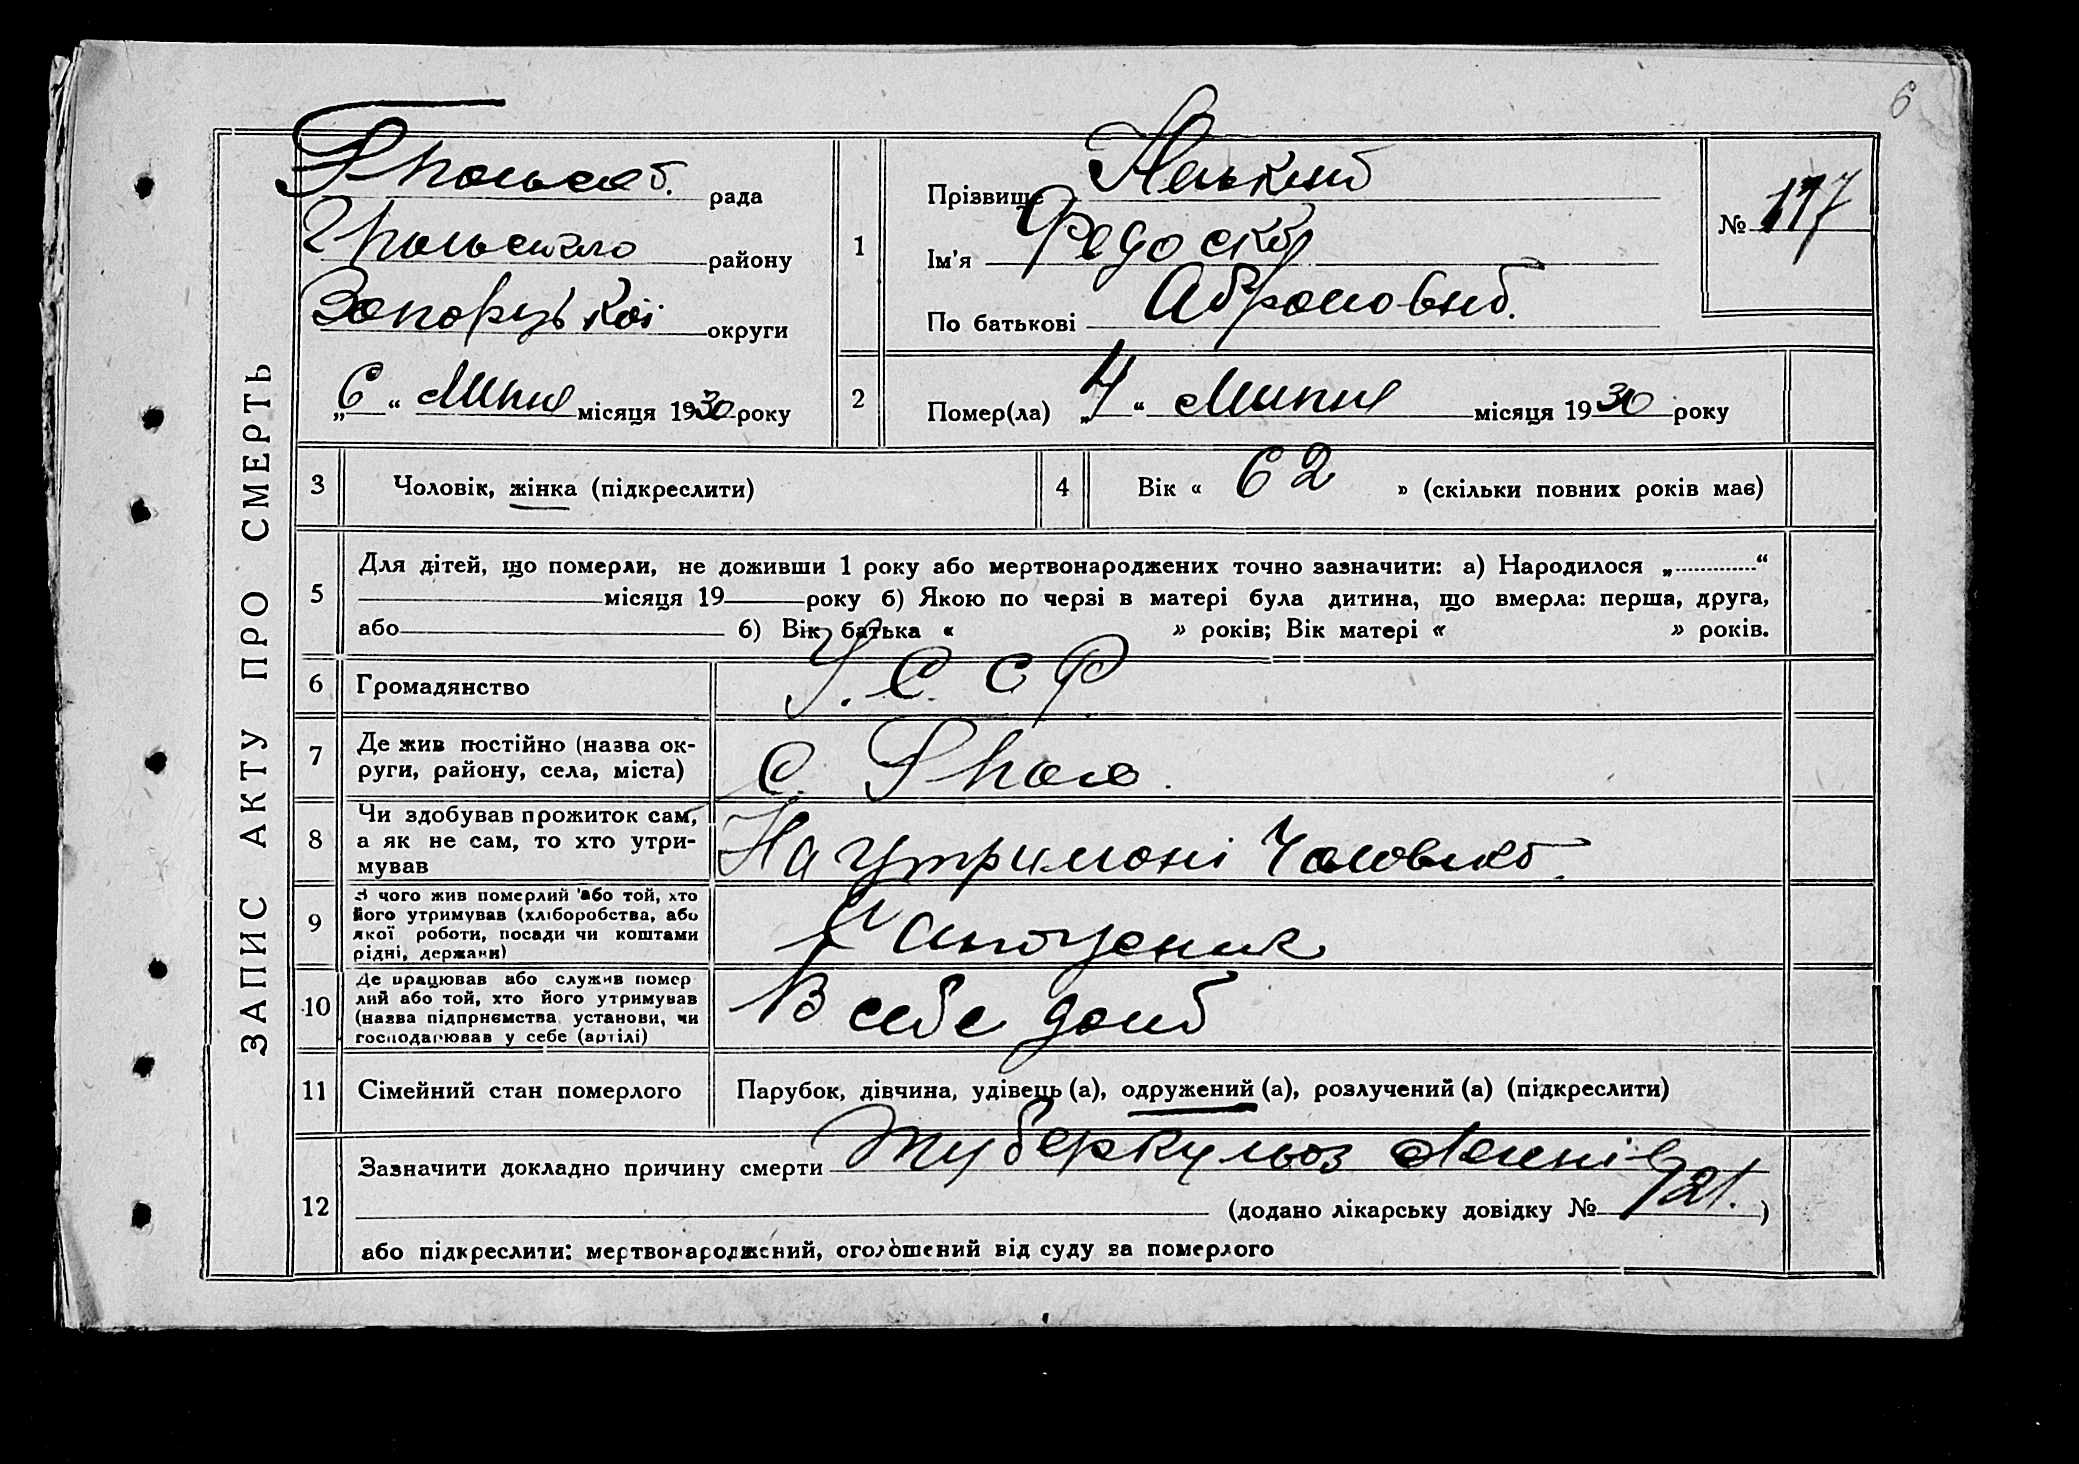 6
ЗАПИС АКТУ ПРО СМЕРТЬ
рада
району
Запорузької округи
„6“ Липня місяця 1930 року
1
Прізвище
Ім'я
По батькові
№ 117
2
Помер(ла) „4“ Липня місяця 1930 року
3
Чоловік, жінка (підкреслити)
4
Вік « 62 » (скільки повних років має)
5
Для дітей, що померли, не доживши 1 року або мертвонароджених точно зазначити: а) Народилося „ “
місяця 19 року б) Якою по черзі в матері була дитина, що вмерла: перша, друга,
або б) Вік батька « » років; Вік матері « » років.
6
Громадянство
У. С. С Р
7
Де жив постійно (назва ок-
руги, району, села, міста)
С.
8
Чи здобував прожиток сам,
а як не сам, то хто утри-
мував
На утримані Чоловіка
9
З чого жив померлий або той, хто
його утримував (хліборобства, або
якої роботи, посади чи коштами
рідні, держави)
10
Де працював або служив помер
лий або той, хто його утримував
(назва підприємства установи, чи
господарював у себе (артілі)
В себе дома
11
Сімейний стан померлого
Парубок, дівчина, удівець (а), одружений (а), розлучений (а) (підкреслити)
12
Зазначити докладно причину смерти Туберкульоз Легенів
(додано лікарську довідку № 921.)
або підкреслити: мертвонароджений, оголошений від суду за померлого